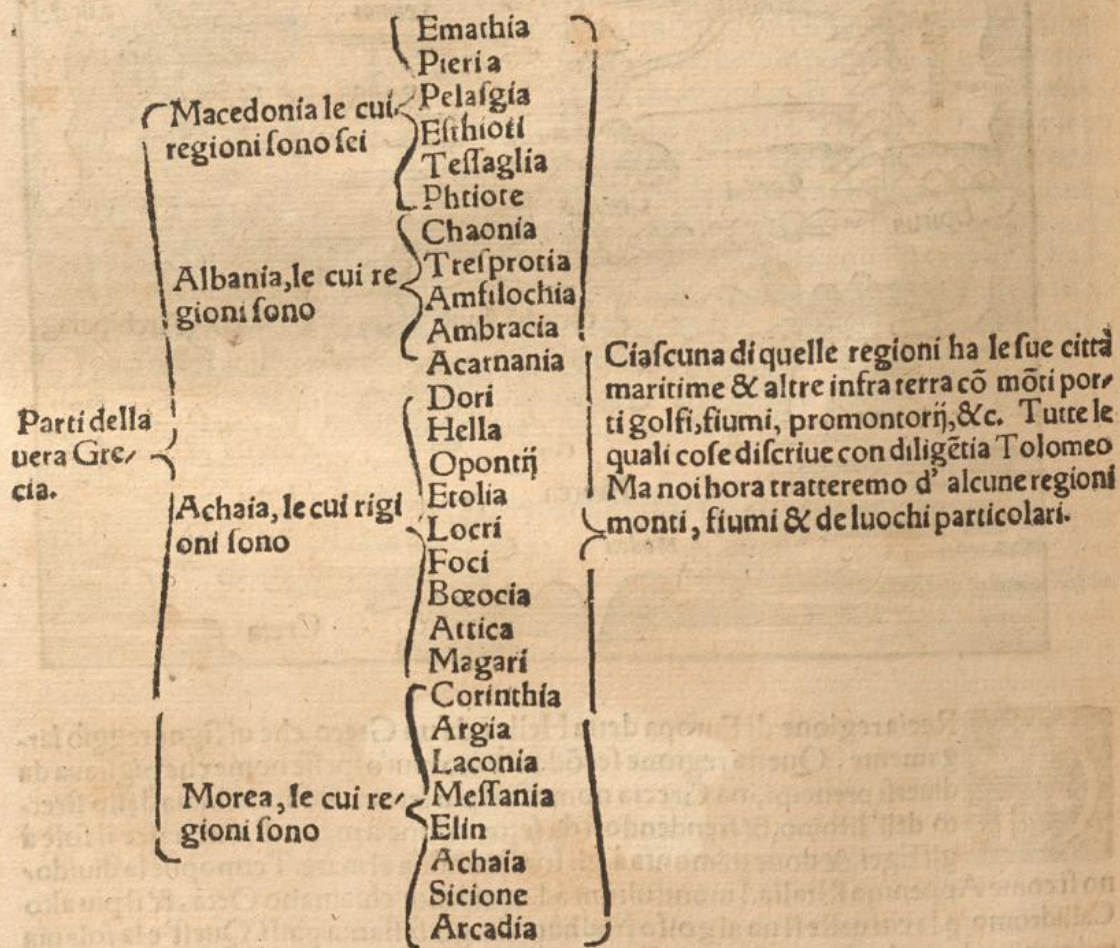 Parti della
uera Gre⸗
cia.
Macedonia le cui
regioni ſono ſei
Emathia
Pieria
Pelaſgia
Eſthioti
Teſſaglia
Phtiote
Albania, le cui re
gioni ſono
Chaonia
Treſprotia
Amfilochia
Ambracia
Acarnania
Achaia, le cui rigi
oni ſono
Dori
Hella
Opontĳ
Etolia
Locri
Foci
Bœocia
Attica
Magari
Morea, le cui re⸗
gioni ſono
Corinthia
Argia
Laconia
Meſſania
Elin
Achaia
Sicione
Arcadia
Ciaſcuna di quelle regioni ha le ſue città
maritime & altre infra terra cō mōti por⸗
ti golfi, fiumi, promontorĳ, &c. Tutte le
quali coſe diſcriue con diligētia Tolomeo
Ma noi hora tratteremo d' alcune regioni
monti, fiumi & de luochi particolari.